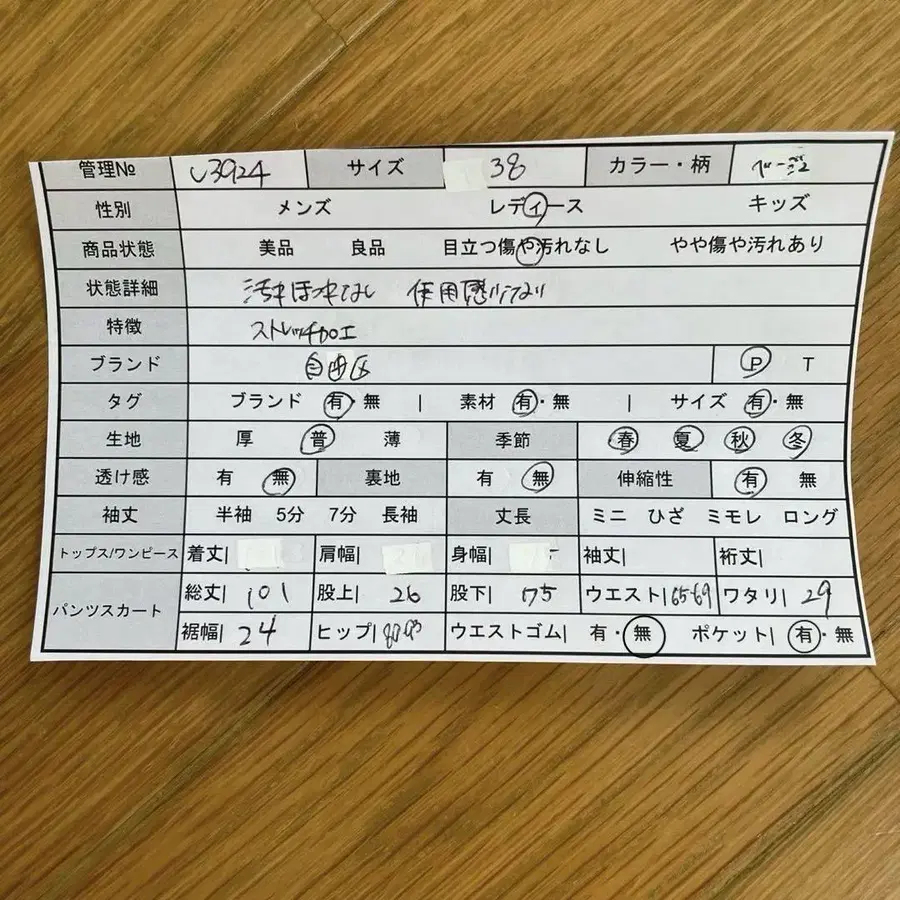 管理№ U3924 サイズ 38 カラー・柄 ベージュ
性別 メンズ レディース キッズ
商品状態 美品 良品 目立つ傷や汚れなし やや傷や汚れあり
状態詳細 汚れほつれなし 使用感少なめ
特徴 ストレッチ加工
ブランド 自由区 P T
タグ ブランド 有・無 | 素材 有・無 | サイズ 有・無
生地 厚 普 薄 季節 春 夏 秋 冬
透け感 有 無 裏地 有 無 伸縮性 有 無
袖丈 半袖 5分 7分 長袖 丈長 ミニ ひざ ミモレ ロング
トップス/ワンピース 着丈| 肩幅| 身幅| 袖丈| 裄丈|
パンツスカート 総丈| 101 股上| 26 股下| 75 ウエスト| 65-69 ワタリ| 29
裾幅| 24 ヒップ| ウエストゴム| 有・無 ポケット| 有・無